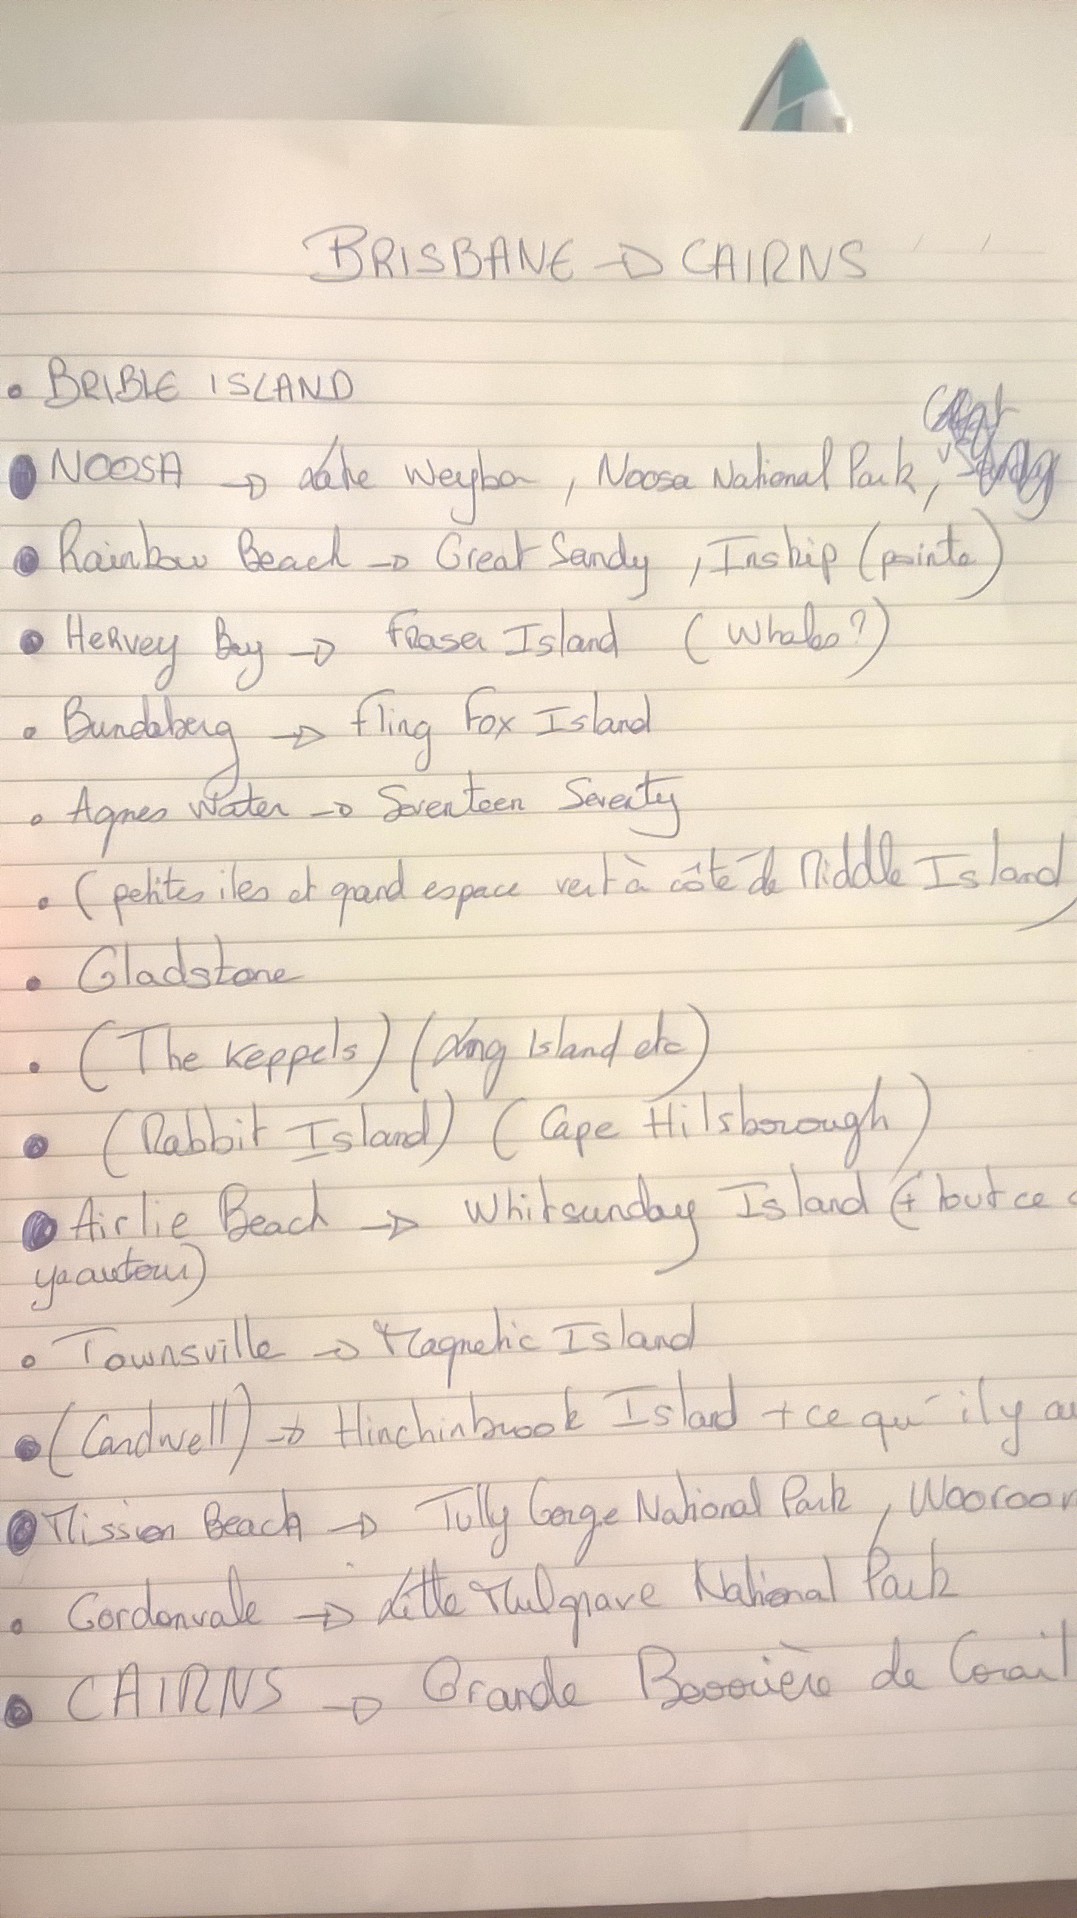 BRISBANE → CAIRNS
• BRIBLE ISLAND
• NOOSA → Lake Weyba, Noosa National Park,
• Rainbow Beach → Great Sandy, Inskip (pointe)
• Hervey Bay → Fraser Island (Whales?)
• Bundaberg → fling Fox Island
• Agnes Water → Seventeen Seventy
• (petites iles et grand espace vert à côté de Middle Island)
• Gladstone
• (The Keppels) (Long Island etc)
• (Rabbit Island) (Cape Hilsborough)
• Airlie Beach → Whitsunday Island (+ tout ce
ya autour)
• Townsville → Magnetic Island
• (Cardwell) → Hinchinbrook Island + ce qu'il y au
• Mission Beach → Tully Gorge National Park, Wooroon
• Gordonvale → Little Mulgrave National Park
• CAIRNS → Grande Barrière de Corail